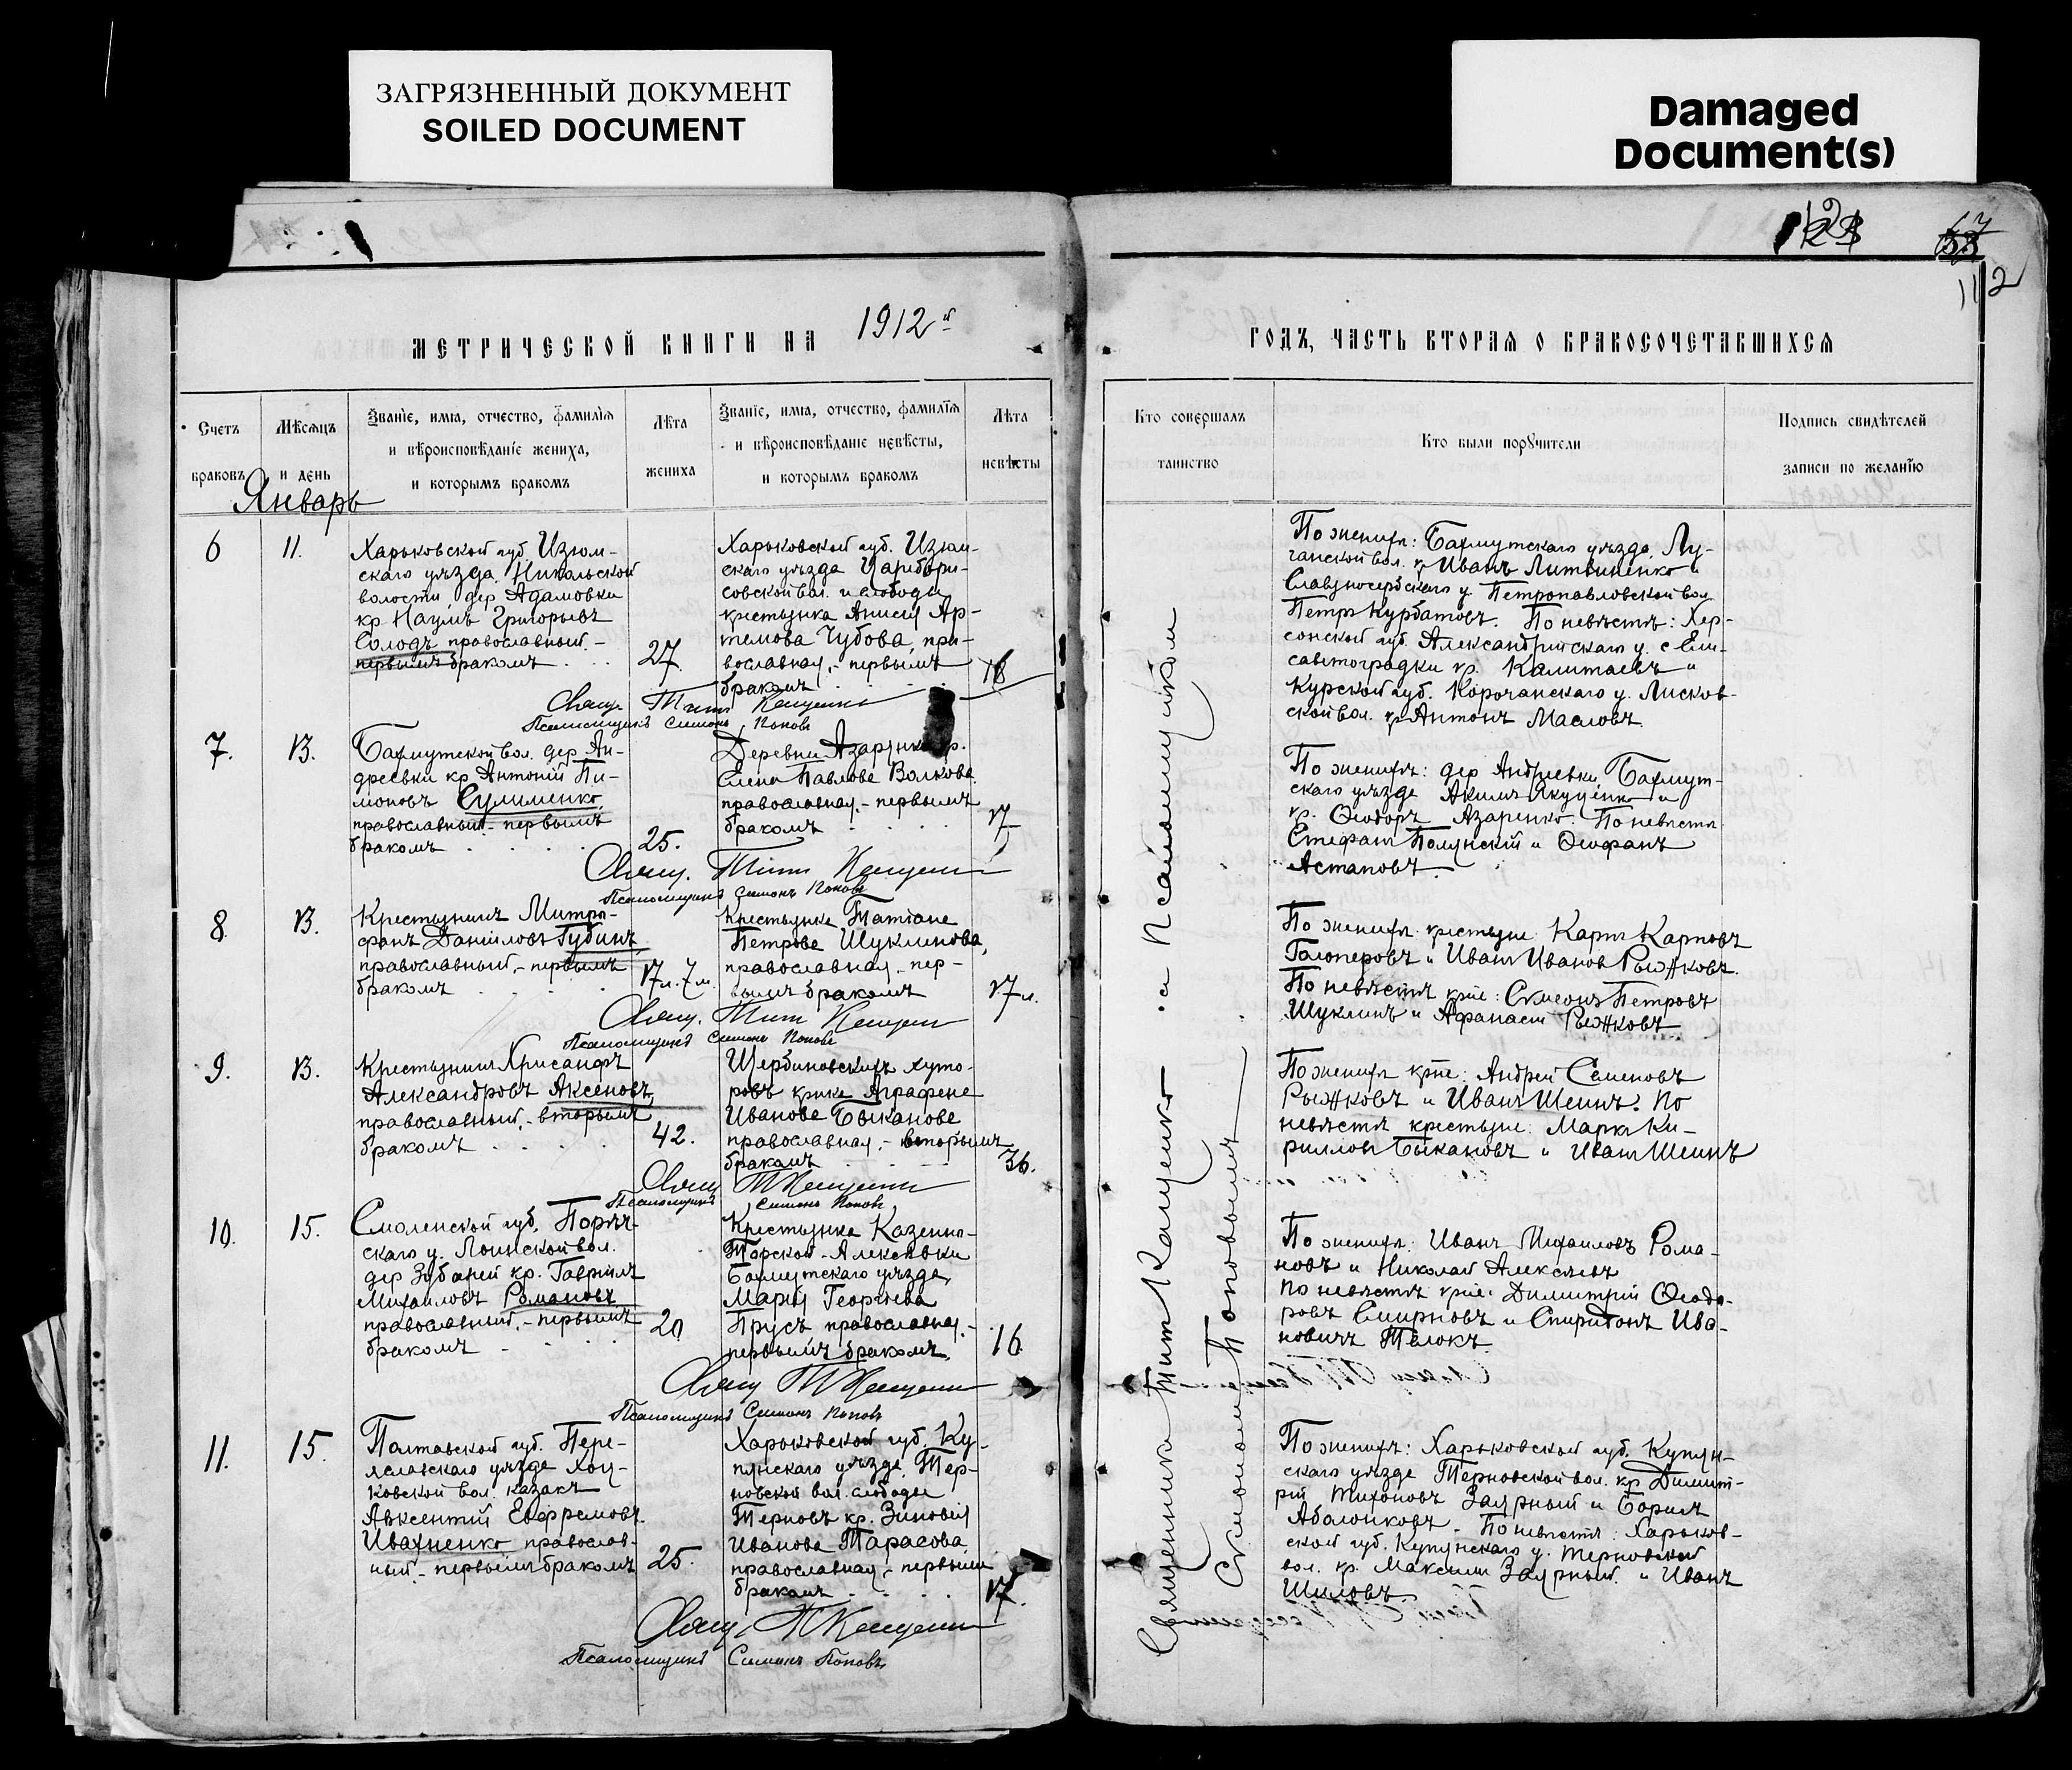 ЗАГРЯЗНЕННЫЙ ДОКУМЕНТ
SOILED DOCUMENT
Damaged
Document(s)
112
МЕТРИЧЕСКОЙ КНИГИ НА 1912 й
ГОДЪ, ЧАСТЬ ВТОРАЯ О БРАКОСОЧЕТАВШИХСЯ
Счетъ
браковъ
Мѣсяцъ
и день
Званіе, имя, отчество, фамилія
и вѣроисповѣданіе жениха,
и которымъ бракомъ
Лѣта
жениха
Званіе, имя, отчество, фамилія
и вѣроисповѣданіе невѣсты,
и которымъ бракомъ
Лѣта
невѣсты
Кто совершалъ
таинство
Кто были поручители
Подпись свидѣтелей
записи по желанію
Январь
6
11.
Харьковской губ. Изюм-
скаго уѣзда, Никольской
волости дер Адамовки
кр Наумъ Григорьевъ
Солодъ, православный. -
первымъ бракомъ
27.
Харьковской губ. Изюм-
скаго уѣзда Царебори-
совской вол. и слободы
крестьянка Анисія Ар-
темова Чубова, пра-
вославная, - первымъ
бракомъ
18
Свящ. Титъ Кащенко
Псаломщикъ Симонъ Поповъ
По женихѣ: Бахмутскаго уѣзда, Лу-
ганской вол. кр Иванъ Литвиненко и
Славяносербскаго у. Петропавловской вол
Петръ Курбатовъ. По невѣстѣ: Хер-
сонской губ. Александрійскаго у. с Ели-
саветоградки кр. Калитаевъ и
Курской губ. Корочанскаго у. Лисков-
ской вол. кр Антонъ Масловъ
7.
13.
Бахмутской вол. дер. Ан-
дреевки кр Антоній Пи-
моновъ Сулименко,
православный - первымъ
бракомъ
25.
Деревни
Елена Павлова Волкова
православная, - первымъ
бракомъ
17
Свящ. Титъ Кащенко
Псаломщикъ Симонъ Поповъ
По женихѣ: дер Андреевки Бахмут-
скаго уѣзда Акимъ Якуценко и
кр. Ѳеодоръ Азаренко. По невѣстѣ
Стефанъ Полунскій и Ѳеофанъ
Астаповъ
8.
13.
Крестьянинъ Митро-
фанъ Даниловъ Губинъ,
православный, - первымъ
бракомъ
17 л. 7 м.
Крестьянка Татіана
Петрова Шуклинова,
православная, - пер-
вымъ бракомъ
17 л.
Свящ. Титъ Кащенко
Псаломщикъ Симонъ Поповъ
По женихѣ крестьяне: Карпъ Карповъ
Галоперовъ и Иванъ Ивановъ Рыжковъ.
По невѣстѣ крне: Симеонъ Петровъ
Шуклинъ и Афанасій Рыжковъ
9.
13.
Крестьянинъ Хрисанфъ
Александровъ Аксеновъ,
православный, - вторымъ
бракомъ
42.
Щербиновскихъ хуто-
ровъ крнка Аграфена
Иванова Быканова
православная, - вторымъ
бракомъ
36.
Свящ Т Кащенко
Псаломщикъ Симонъ Поповъ
По женихѣ крне: Андрей Семеновъ
Рыжковъ и Иванъ Шеинъ. По
невѣстѣ крестьяне: Маркъ Ки-
рилловъ Быкановъ и Иванъ Шеинъ
10.
15.
Смоленской губ. Порѣч-
скаго у. Лоинской вол.
дер Зубаней кр. Гавріилъ
Михаиловъ Романовъ
православный, - первымъ
бракомъ
20
Крестьянка Казенно-
Торской - Алексѣевки
Бахмутскаго уѣзда,
Марія Георгіева
Прусъ православная, -
первымъ бракомъ,
16
Свящ Т Кащенко
Псаломщикъ Симонъ Поповъ
По женихѣ: Иванъ Михаиловъ Рома-
новъ и Николай Алексѣевъ
по невѣстѣ крне: Димитрій Ѳеодо-
ровъ Смирновъ и Спиридонъ Ива-
новичъ Телокъ
11.
15.
Полтавской губ. Пере-
яславскаго уѣзда Хоц-
ковской вол. казакъ
Авксентій Евфремовъ
Ивахненко православ-
ный - первымъ бракомъ
25.
Харьковской губ. Ку-
пянскаго уѣзда, Тер-
новской вол. слободы
Терновъ кр. Зиновія
Иванова Тарасова,
православная, - первымъ
бракомъ
17.
Свящ. Т Кащенко
Псаломщикъ Симонъ Поповъ
По женихѣ: Харьковской губ. Купян-
скаго уѣзда Терновской вол. кр Димит-
рій Тихоновъ Заярный и Борисъ
Абалонковъ. По невѣстѣ: Харьков-
ской губ. Купянскаго у. Терновской
вол. кр. Максимъ Заярный. и Иванъ
Шиловъ
Священникъ Титъ Кащенко съ Псаломщикомъ
Симономъ Поповымъ